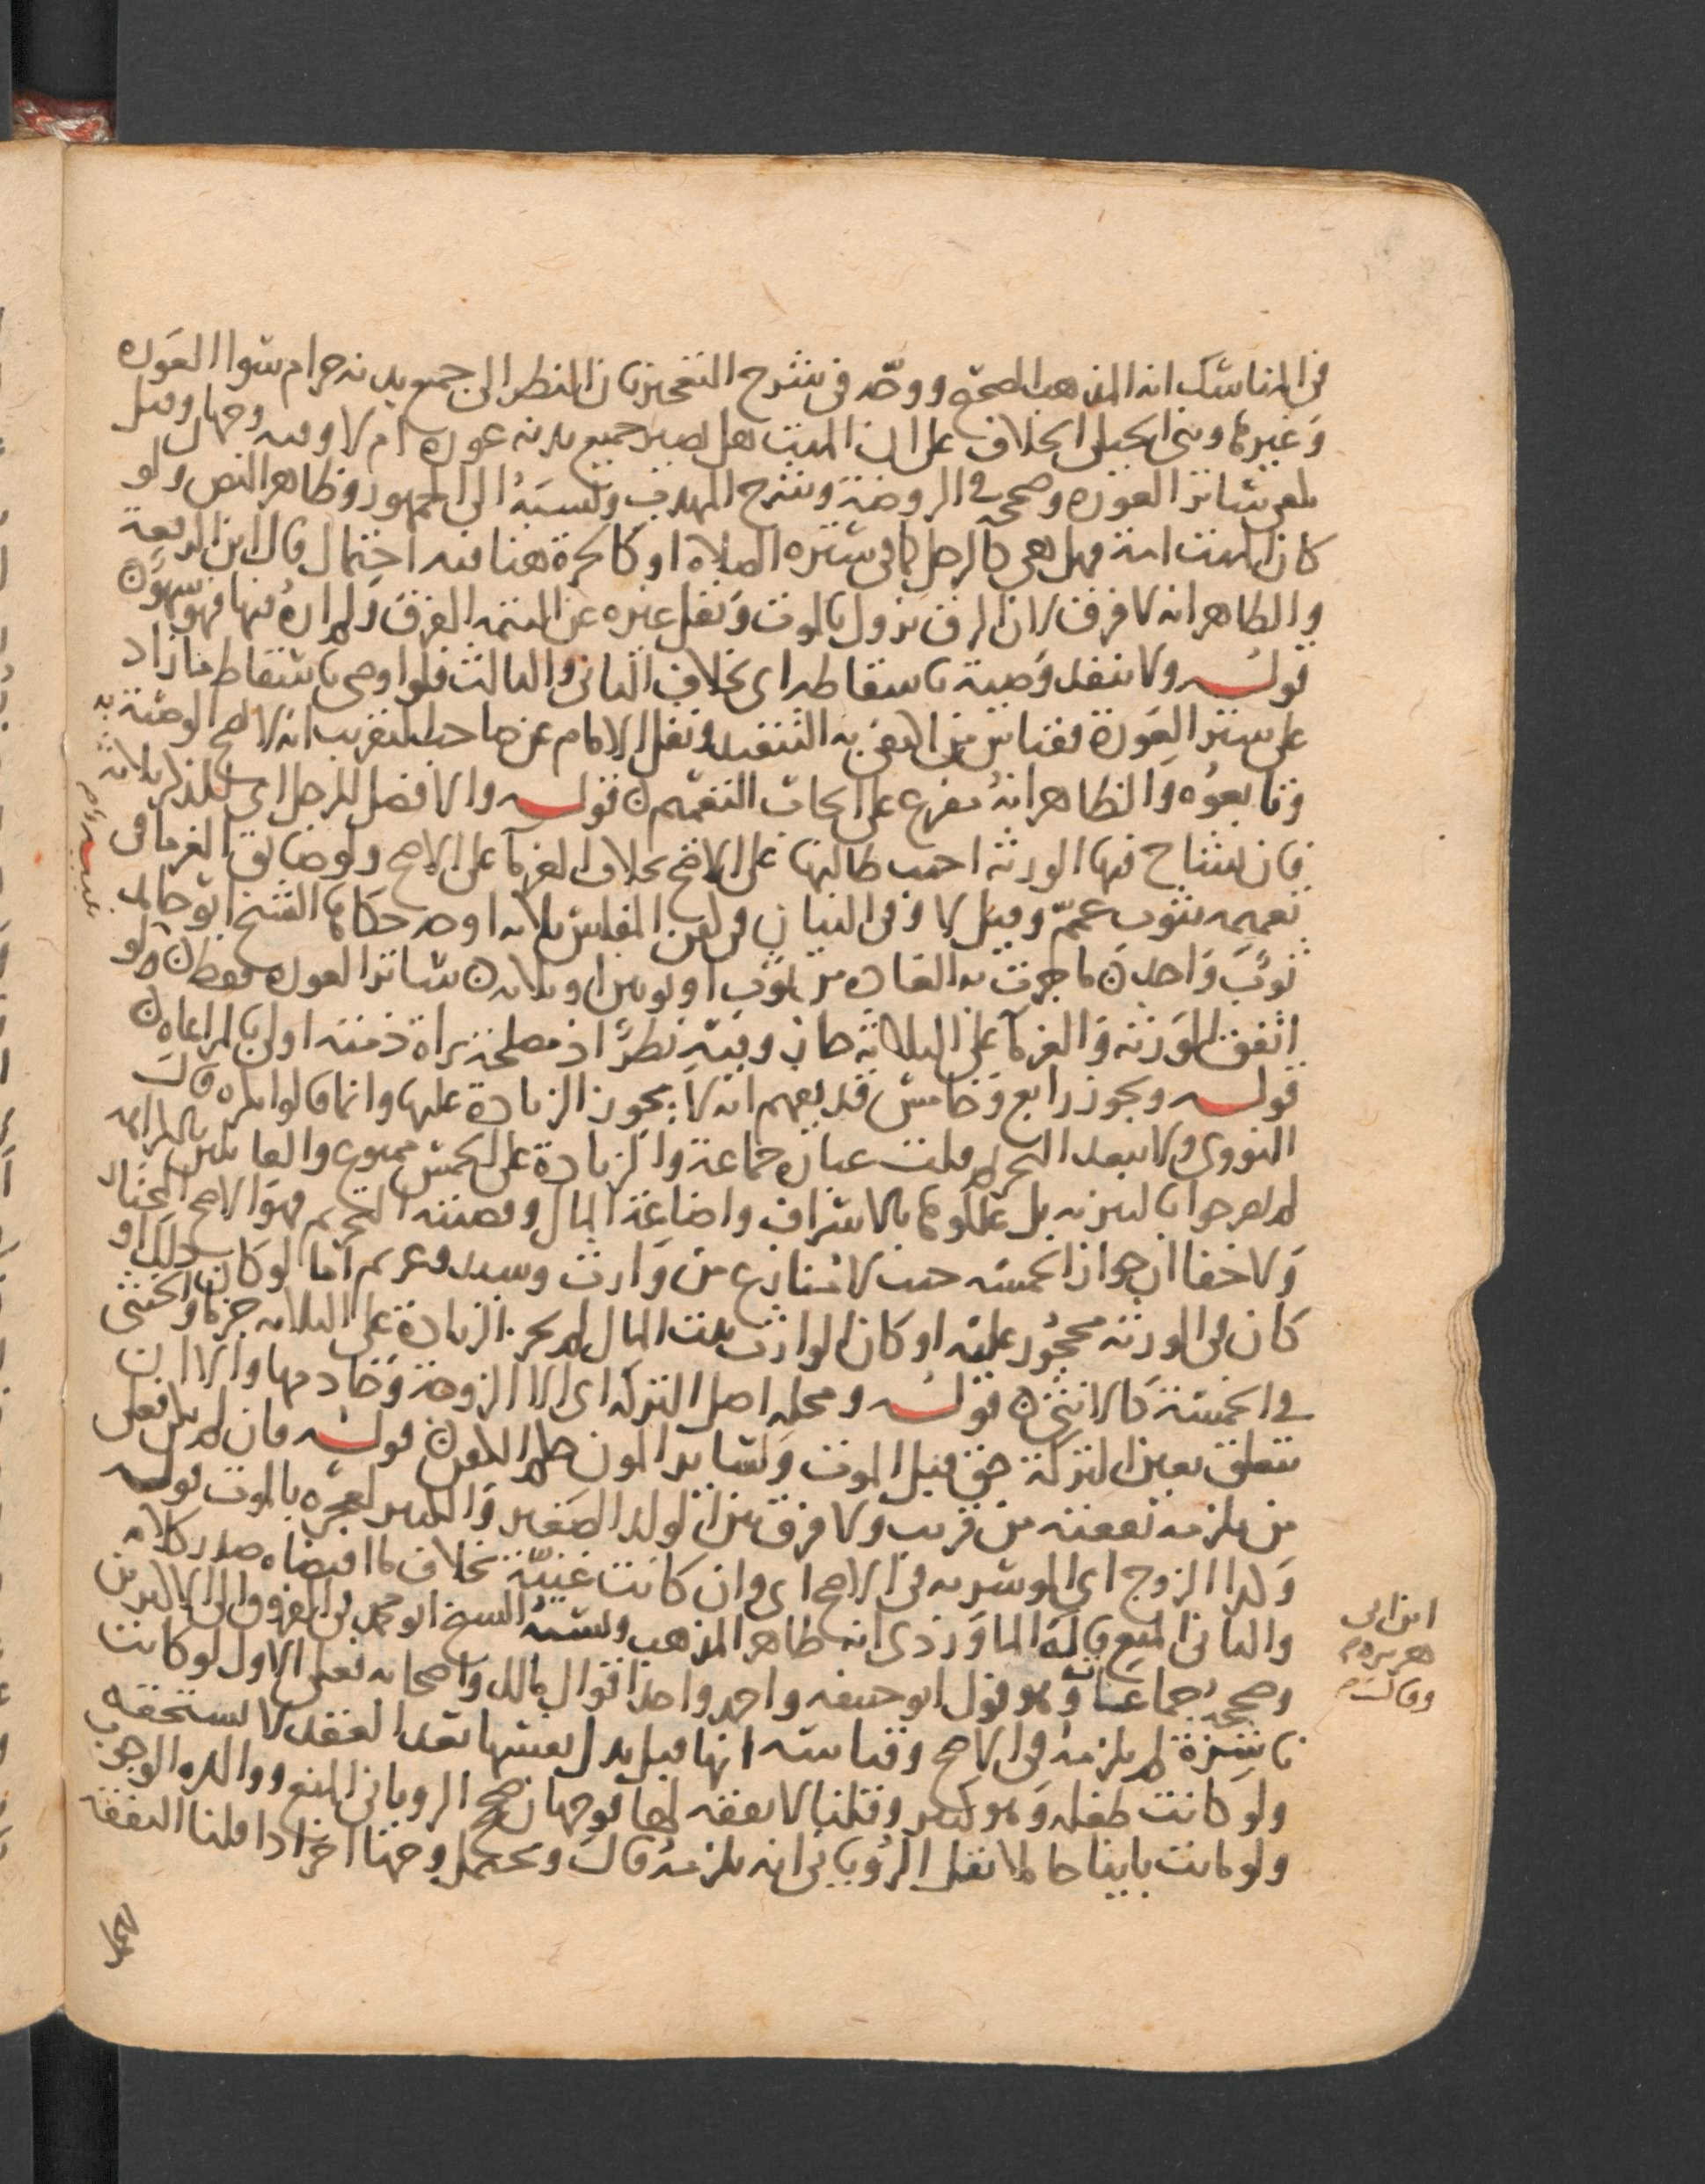 في المناسك انه المذهب الصحيح ووجّه في شرح التعجيز بان النظر الى جميع بدنه حرام سوا العوره
وغيرها وبنى الجيلي الخلاف على ان الميت هل يصير جميع بدنه عورة ام لا وفيه وجهان وقيل
يكفى ساتر العوره وصححه في الروضة وشرح المهذب ونسبه الى الجمهور وظاهر النص ولو
كان الميت امة فهل هي كالرجل كما في ستره الصلاه او كالحرة هنا فيه احتمال قال ابن الرفعة
والظاهر انه لا فرق لان الرق يزول بالموت ونقل غيره عن التتمه الفرق ولم اره فيها فهو سهو
قوله ولا تنفذ وصية باسقاطه اى بخلاف الثاني والثالث فلو اوصى باسقاط ما زاد
على ستر العورة فقياس من اكتفى به التنفيذ ونقل الامام عن صاحب التقريب انه لا تصح الوصية به
وتابعوه والظاهر انه مفرع على ايجاب التعميم قوله والافضل للرجل اى للذكر ثلاثه
فان تشاح فيها الورثه اجيب طالبها على الاصح بخلاف الغرما على الاصح ولو ضايق الغرما في
تعميمه بثوب عمم وقيل لا وفى البيان في كفن المفلس ثلاثه اوجه حكاها الشيخ ابو حامد
ثوب واحد ما جرت به العاده من ثوب او ثوبين او ثلاثه ساتر العوره فقط ولو
اتفق الورثه والغرما على الثلاثه جاز وفيه نظر اذ مصلحة براة ذمته اولى بالمراعاه
قوله ويجوز رابع وخامس قد يفهم انه لا يجوز الزيادة عليها وانما قالوا يكره قال
النووي ولا يبعد التحريم قلت عبارة جماعة والزيادة على الخمس ممنوع والقائلين بالكراهه
لم يصرحوا بالتنزيه بل عللوها بالاسراف واضاعة المال وقضيته التحريم فهو الاصح المختار
ولا خفا ان جواز الخمسه حيث لا منازع من وارث وسيد وغريم اما لو كان ذلك او
كان في الورثه محجور عليه او كان الوارث بيت المال لم يجز الزيادة على الثلاثه جزما والخنثى
في الخمسة كالانثى قوله ومحله اصل التركه اى الا الزوجة وخادمها والا ان
تتعلق بعين التركة حق قبل الموت ولسائر المون حكم الكفن قوله فان لم يكن فعلى
من يلزمه نفقته من قريب ولا فرق بين الولد الصغير والكبير لعجزه بالموت قوله
وكذا الزوج اى الموسر به في الاصح اى وان كانت غنية بخلاف ما اقتضاه صدر كلامه
والثاني المنع قال الماوردي انه ظاهر المذهب ونسبه الشيخ ابو محمد في الفروق الى الاكثرين
وصححه جماعات وهو قول ابو حنيفه واحمد واحد اقوال مالك واصحابه فعلى الاول لو كانت
ناشزة لم يلزمه في الاصح وقياسه انها قبل بذل نفسها بعد العقد لا تستحقه
ولو كانت طفله وهو كبير وقلنا لا نفقه لها فوجهان صحح الروياني المنع ووالده الوجوب
ولو كانت باينا حاملا نقل الروياني انه يلزمه قال ويحتمل وجها اخر اذا قلنا النفقة
ابن ابى
هريره
وقال
للحمل